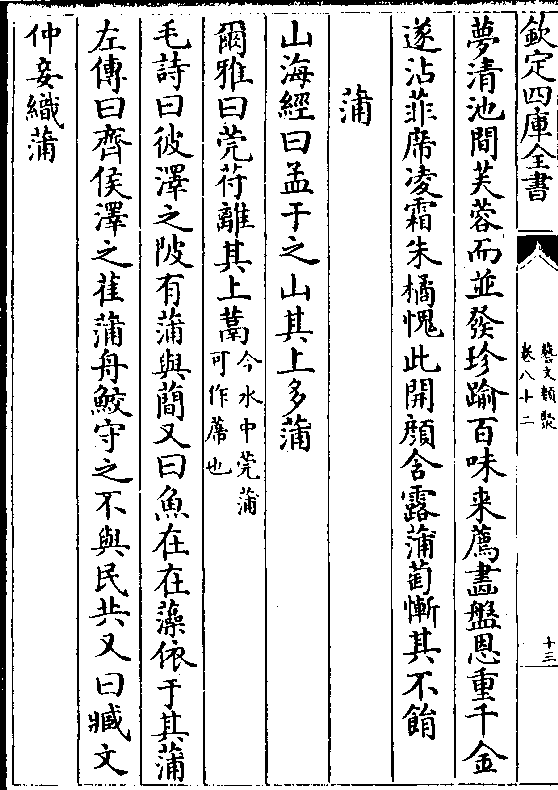 欽定四庫全書
藝文類聚
卷八十二
十三
夢清池間芙蓉而並發珍踰百味来薦畵盤恩重千金
遂沾菲席凌霜朱橘愧此開顔含露蒲萄慚其不餇
蒲
山海經曰孟于之山其上多蒲
爾雅曰莞苻離其上蒚今水中莞蒲
可作席也
毛詩曰彼澤之陂有蒲與蕳又曰魚在在藻依于其蒲
左傳曰齊侯澤之萑蒲舟鮫守之不與民共又曰臧文
仲妾織蒲